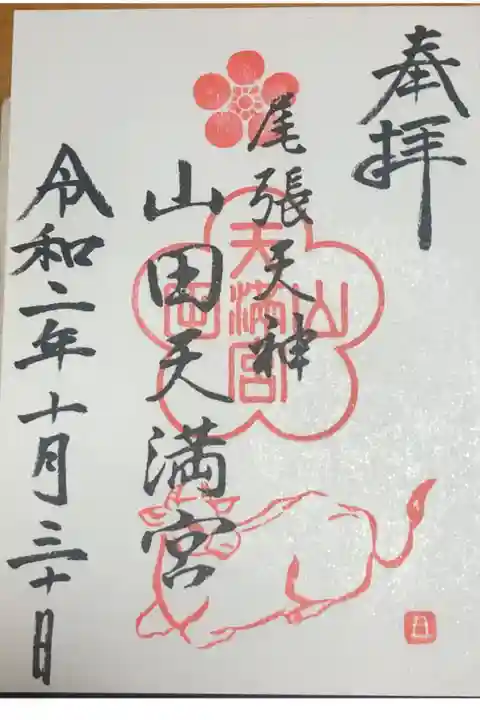 奉拝
尾張天神
山田天満宮
山田
天満宮
令和二年十月三十日